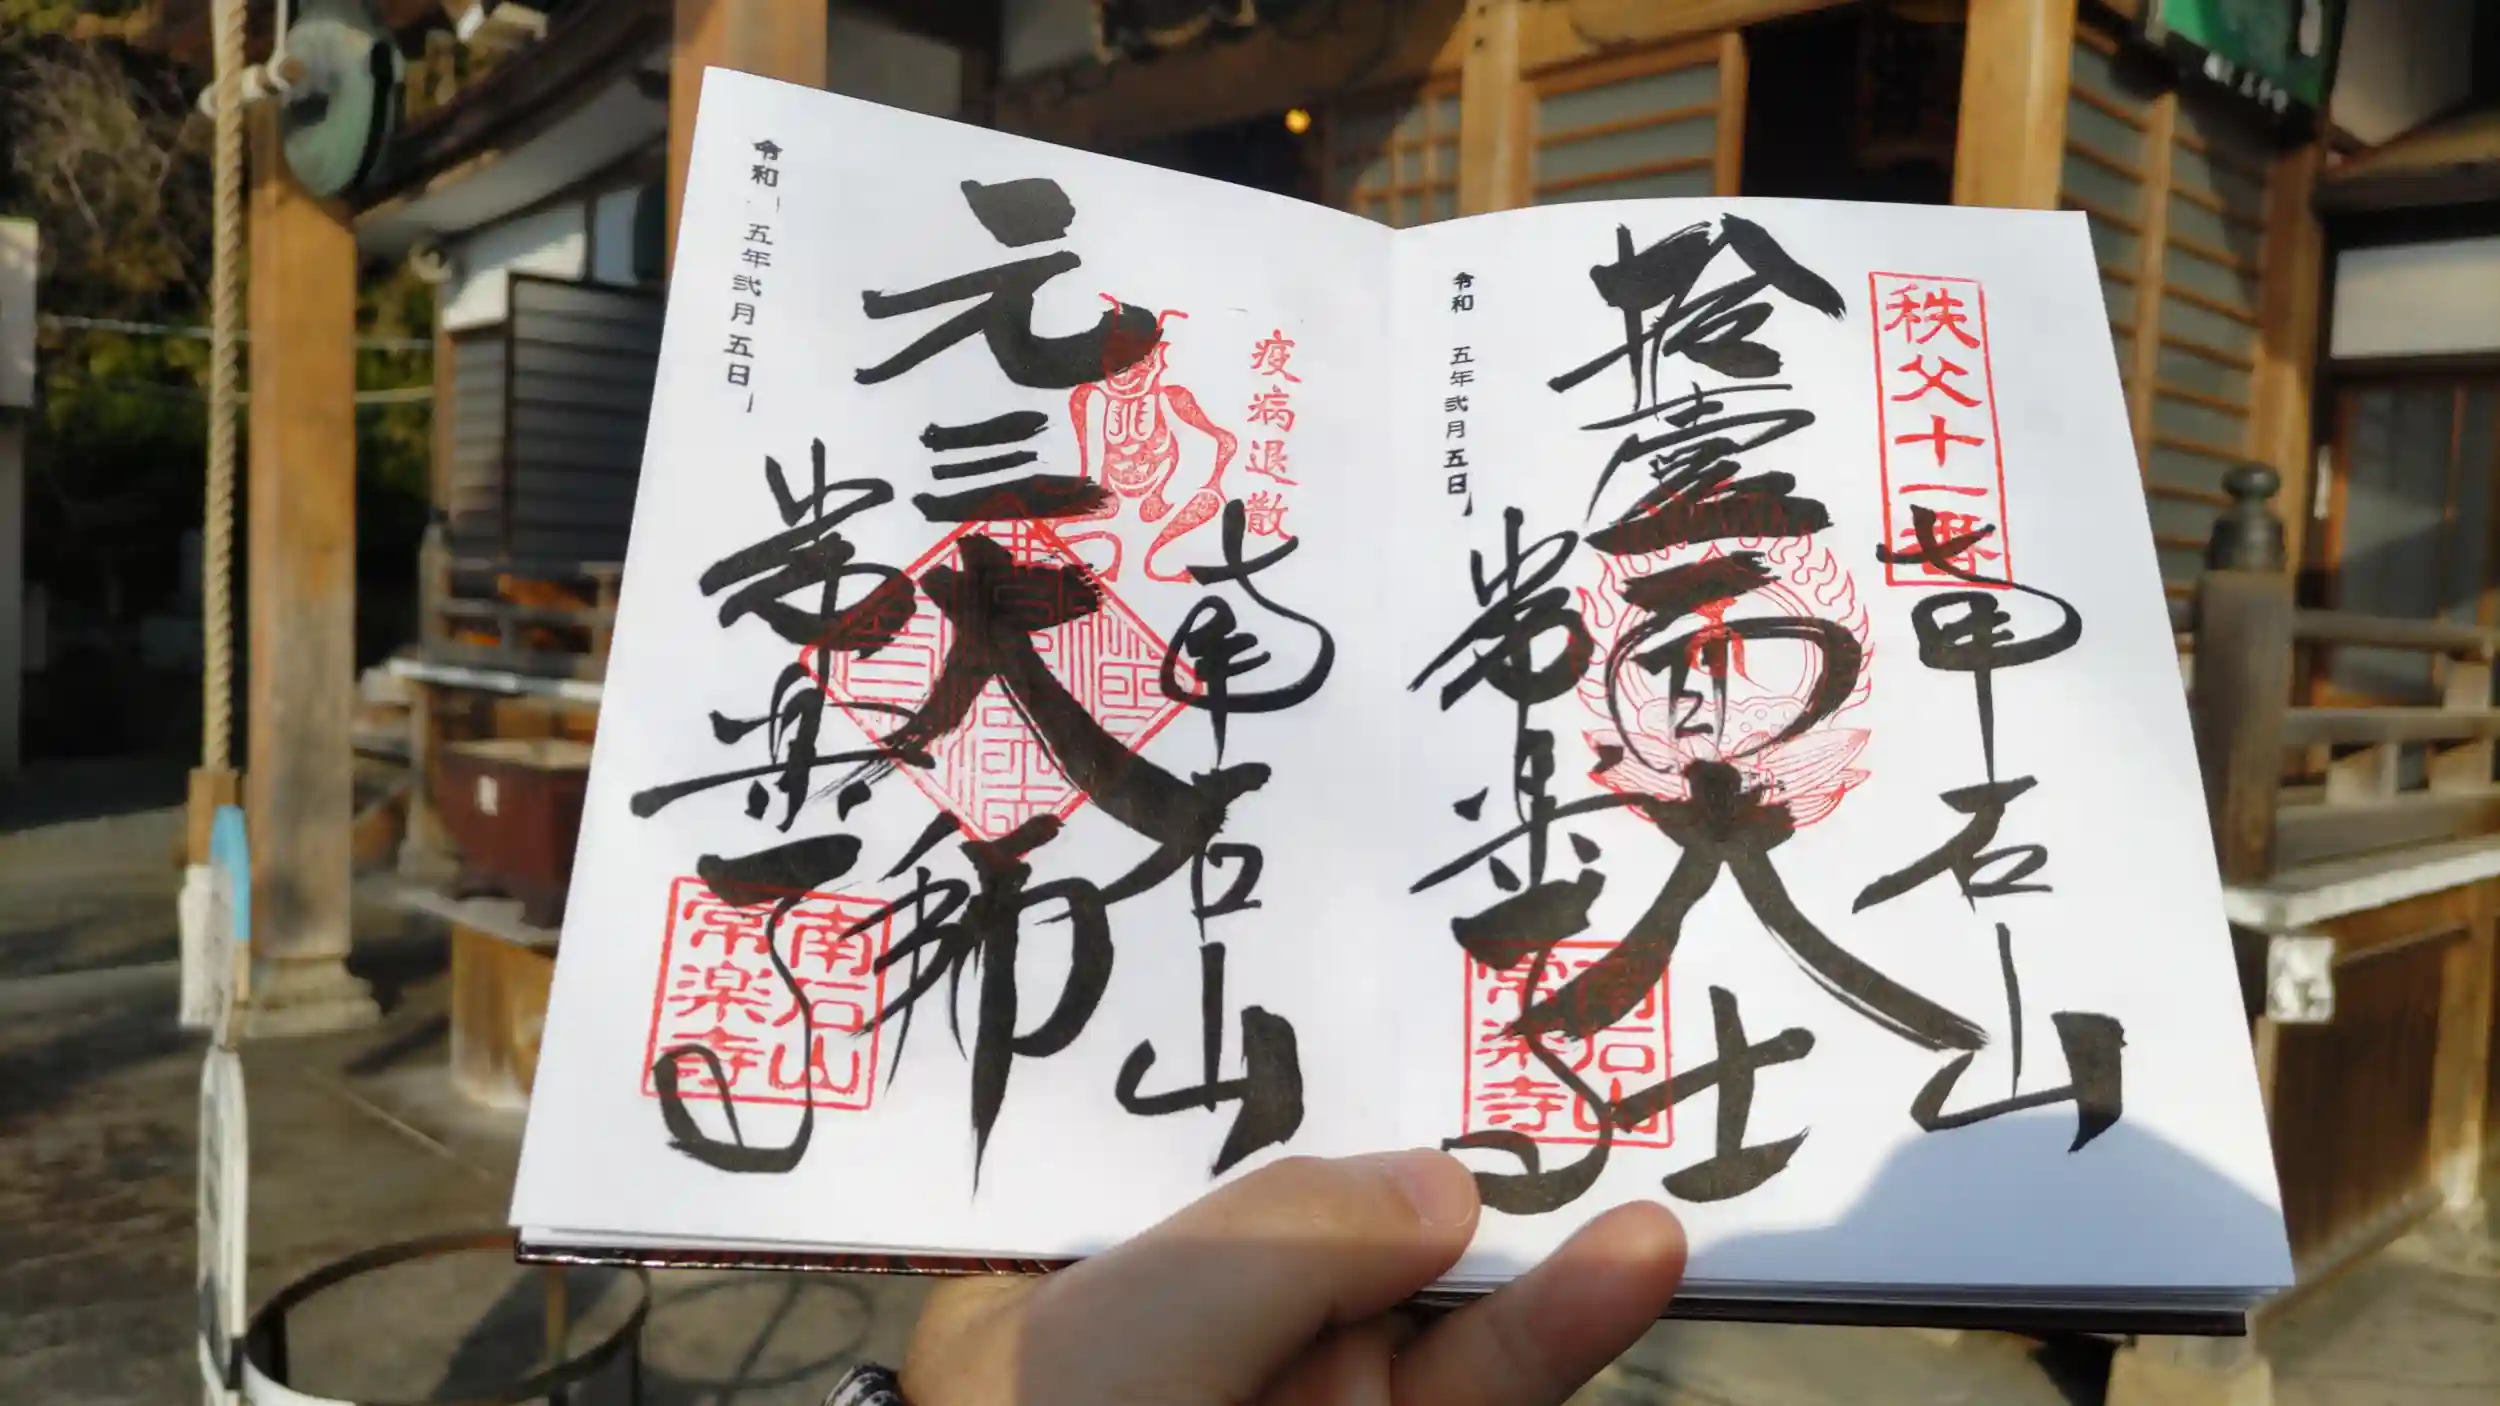 秩父十一番
南石山
拾壹面大士
常楽寺
南石山
常楽寺
令和 五年弐月五日
疫病退散
南石山
元三大師
常楽寺
南石山
常楽寺
令和 五年弐月五日